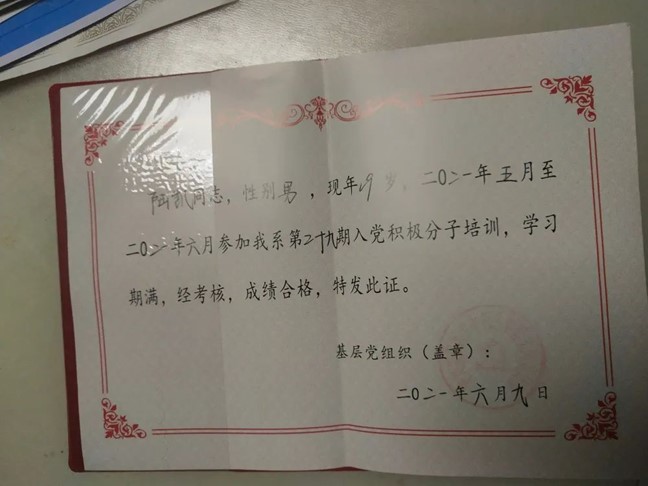 陆凯同志，性别男，现年19岁，二〇二一年五月至
二〇二一年六月参加我系第二十九期入党积极分子培训，学习
期满，经考核，成绩合格，特发此证。
基层党组织（盖章）：
二〇二一年六月九日